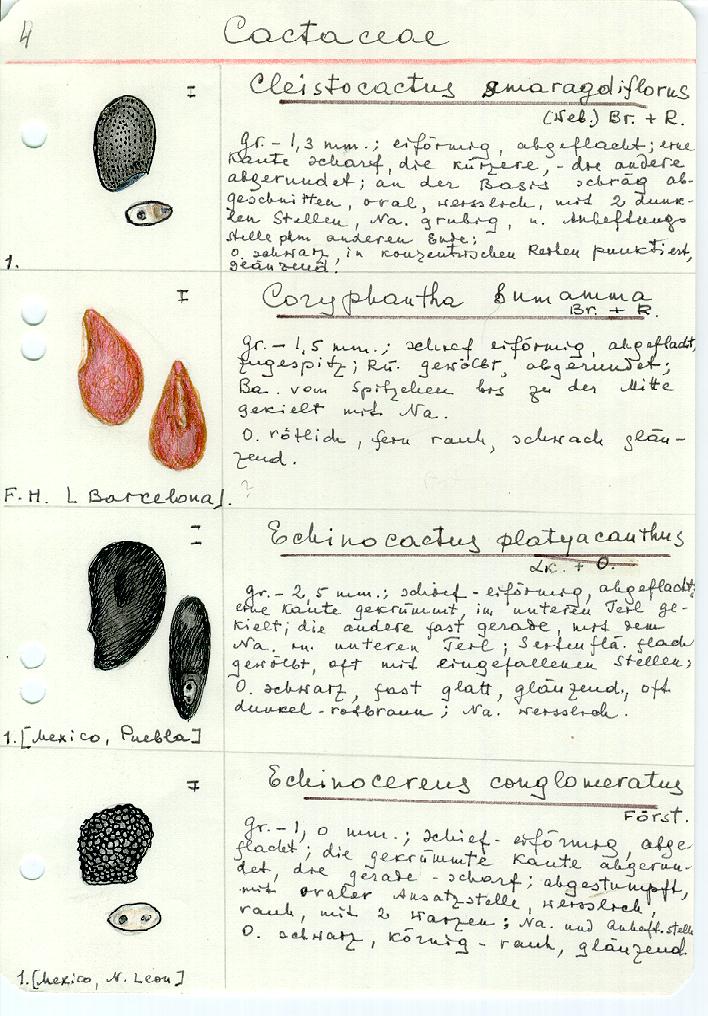 4
Cactaceae
I
Cleistocactus smaragdiflorus
(Web.) Br. + R.
gr. - 1,3 mm.; eiförmig, abgeflacht; eine
Kante scharf, die kürzere, - die andere
abgerundet; an der Basis schräg ab-
geschnitten, oval, weisslich, mit 2 dunk-
len Stellen, Na. grubig, u. Anheftungs
stelle am anderen Ende;
O. schwarz, in konzentrischen Reihen punktiert,
glänzend.
1.
I
Coryphantha bumamma
Br. + R.
gr. - 1,5 mm.; schief eiförmig, abgeflacht,
zugespitz; Rü. gewölbt, abgerundet;
Ba. vom Spitzchen bis zu der Mitte
gekielt mit Na.
O. rötlich, fein rauh, schwach glän-
zend.
F. H. [Barcelona]. ?
I
Echinocactus platyacanthus
Lk. + O.
gr. - 2,5 mm.; schief-eiförmig, abgeflacht;
eine Kante gekrümmt, im unteren Teil ge-
kielt; die andere fast gerade, mit dem
Na. im unteren Teil; Seitenflä. flach
gewölbt, oft mit eingefallenen Stellen;
O. schwarz, fast glatt, glänzend, oft
dunkel-rotbraun; Na. weisslich.
1. [Mexico, Puebla]
I
Echinocereus conglomeratus
Först.
gr. - 1,0 mm.; schief-eiförmig, abge
flacht; die gekrümmte Kante abgerun-
det, die gerade - scharf; abgestumpft,
mit ovaler Ansatzstelle, weisslich,
rauh, mit 2 Warzen; Na. und Anheft.stelle
O. schwarz, körnig-rauh, glänzend.
1. [Mexico, N. Leon]